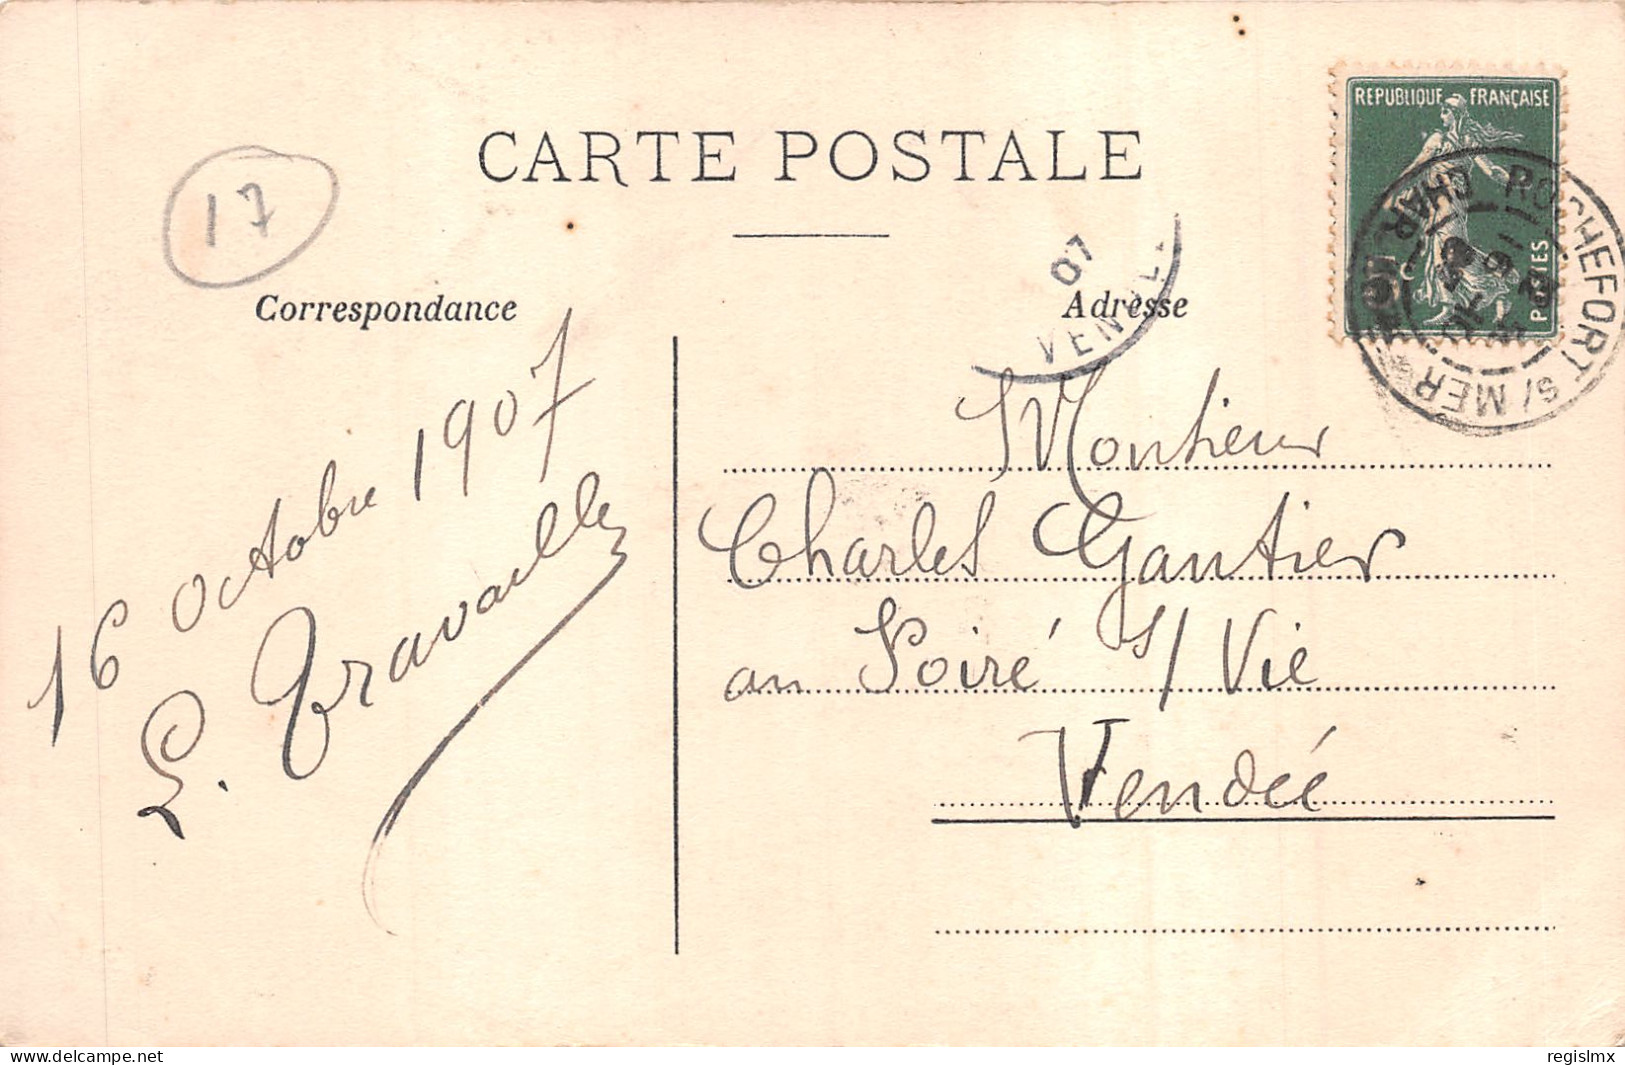 CARTE POSTALE
17
Correspondance
Adresse
16 octobre 1907
L. Travaillé
Monsieur
Charles Gautier
au Poiré s/ Vie
Vendée
REPUBLIQUE FRANÇAISE
POSTES
ROCHEFORT S/MER
CHAR
07
delcampe.net
regislmx